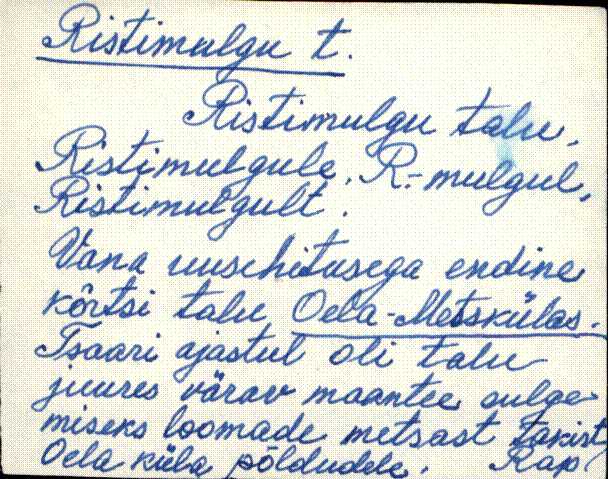 Ristimulgu t.
Ristimulgu talu,
Ristimulgule, R.-mulgul,
Ristimulgult.
Vana uusehitusega endine
kõrtsi talu Oela-Metskülas.
Tsaari ajastul oli talu
juures värav maantee sulge-
miseks loomade metsast takist
Oela küla põldudele. Rap